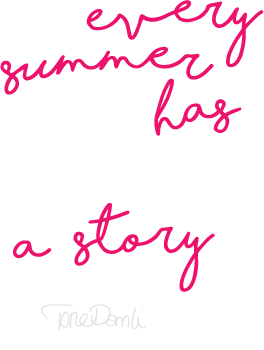 every
summer
has
a story
Tone Damli